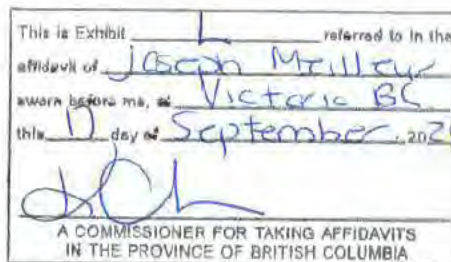 This is Exhibit L referred to in the
affidavit of Joseph Meilleur
sworn before me, at Victoria BC
this 17 day of September, 202
A COMMISSIONER FOR TAKING AFFIDAVITS
IN THE PROVINCE OF BRITISH COLUMBIA